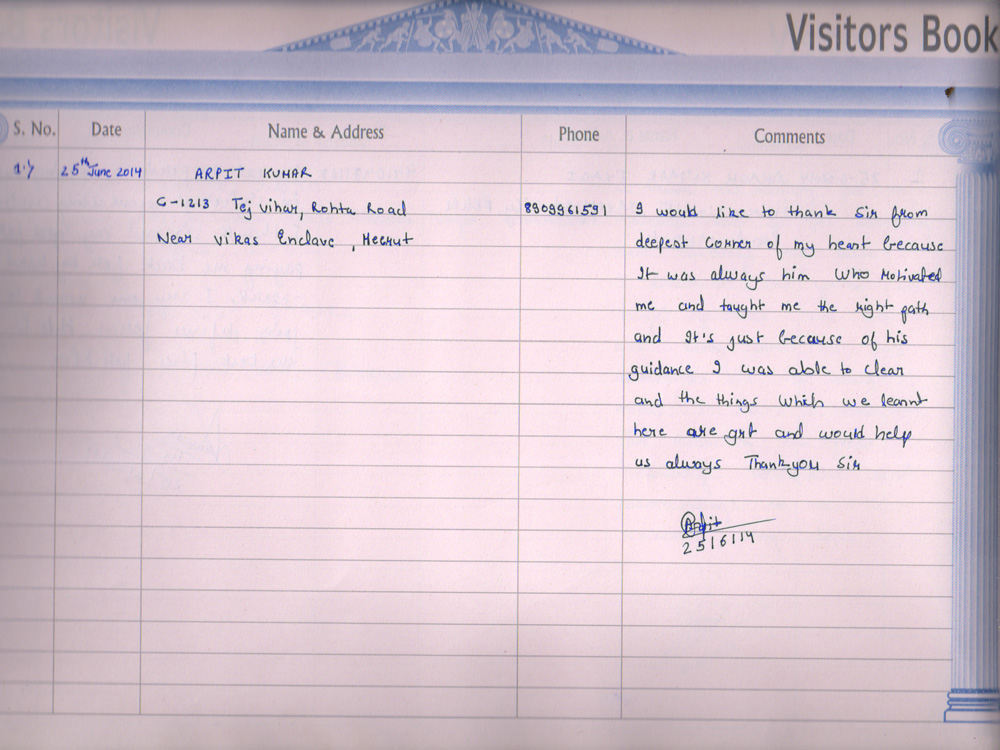 Visitors Book
S. No. Date Name & Address Phone Comments
1.) 25th June 2014 ARPIT KUMAR
C-1213 Tej Vihar, Rohta Road 8909961591 I would like to thank Sir from
Near Vikas Enclave, Meerut deepest corner of my heart because
It was always him who Motivated
me and taught me the right path
and It's just because of his
guidance I was able to clear
and the things which we learnt
here are grt and would help
us always Thankyou Sir
Arpit
25/6/14